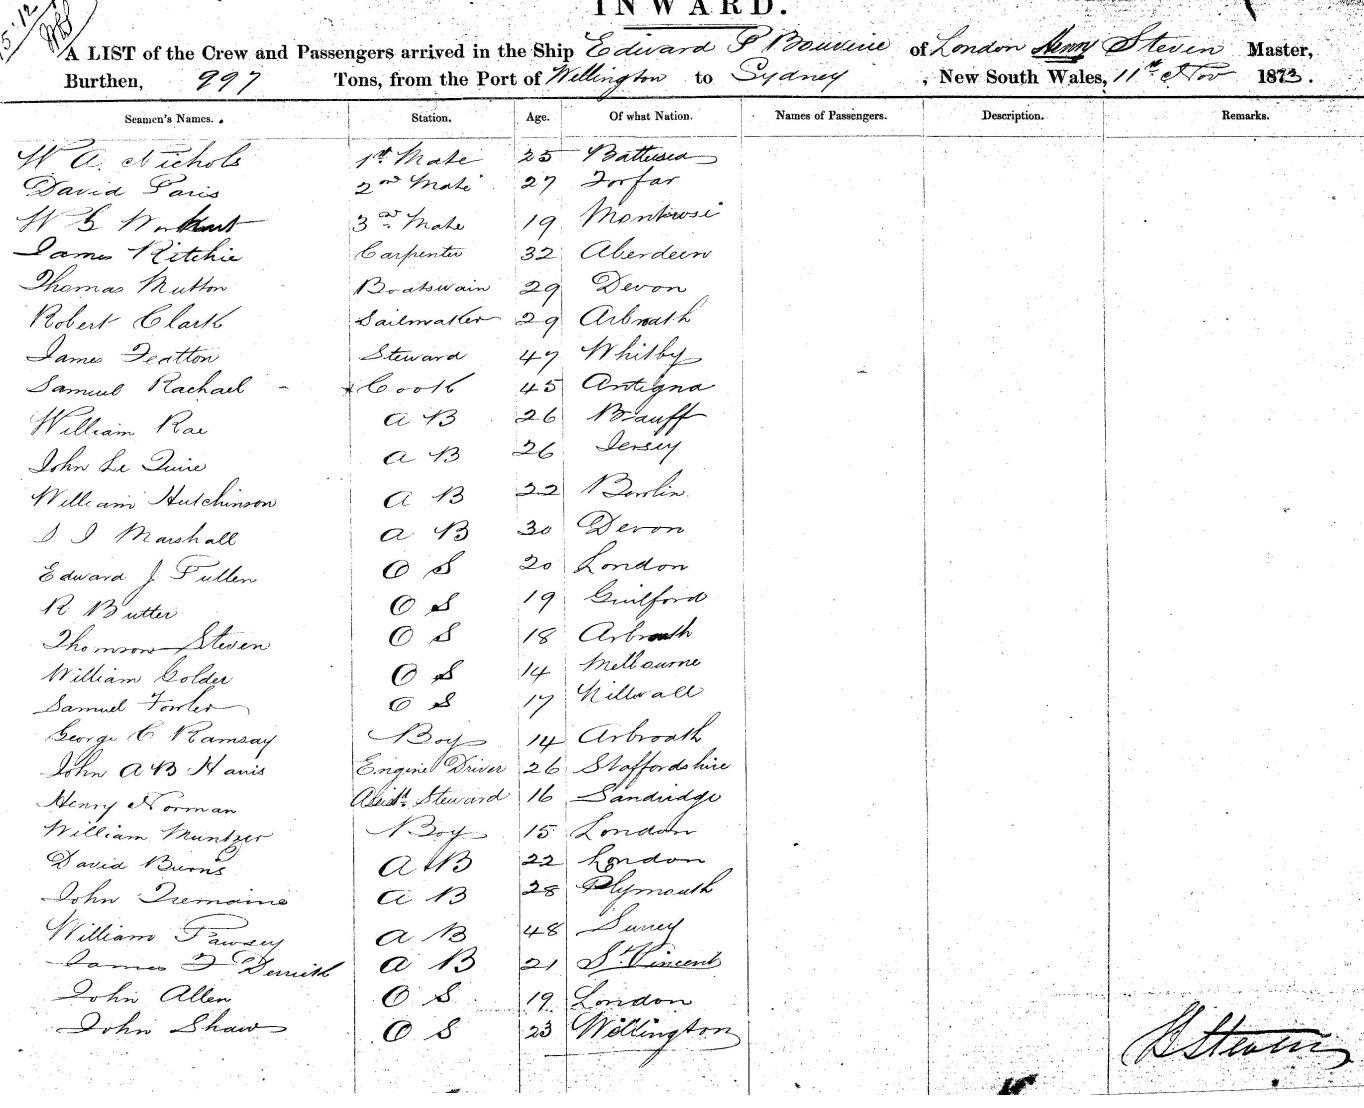 15.12
INWARD.
A LIST of the Crew and Passengers arrived in the Ship Edward P Bouverie of London Henry Steven Master,
Burthen, 997 Tons, from the Port of Wellington to Sydney, New South Wales, 11th Nov 1873.
Seamen's Names. Station. Age. Of what Nation. Names of Passengers. Description. Remarks.
W A. Nichols 1st Mate 25 Battersea
David Paris 2nd Mate 27 Forfar
W G 3rd Mate 19 Montrose
James Ritchie Carpenter 32 Aberdeen
Thomas Mutton Boatswain 29 Devon
Robert Clark Sailmaker 29 Arbroath
James Featton Steward 47 Whitby
Samuel Rachael Cook 45 Antigna
William Rae A B 26 Banff
John Le Quire A B 26 Jersey
William Hutchinson A B 22
S J Marshall A B 30 Devon
Edward J Fullen O S 20 London
R Butter O S 19 Guilford
Thomson Steven O S 18 Arbroath
William Golder O S 14 Melbourne
Samuel Fowler O S 17 Millwall
George C Ramsay Boy 14 Arbroath
John A B Harris Engine Driver 26 Staffordshire
Henry Norman Assist. Steward 16 Sandridge
William Muntzer Boy 15 London
David Burns A B 22 London
John Tremaine A B 28 Plymouth
William Pawsey A B 48 Surrey
James F Derrick A B 21 St. Vincent
John Allen O S 19 London
John Shaw O S 23 Wellington
H Steven